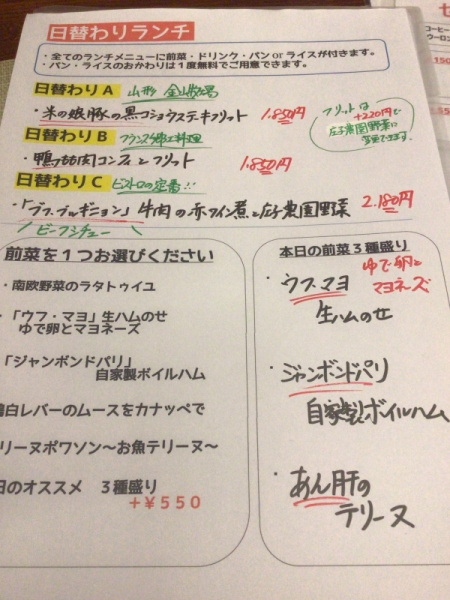 日替わりランチ
・全てのランチメニューに前菜・ドリンク・パンorライスが付きます。
・パン・ライスのおかわりは１度無料でご用意できます。
日替わりA 山形
・米の娘豚の黒コショウステキフリット 1.850円
フリットは
+220円で
庄子農園野菜に
変更できます。
日替わりB フランス郷土料理
・鴨モモ肉コンフィとフリット 1.850円
日替わりC ビストロの定番!!
・「ブフ・ブルギニョン」牛肉の赤ワイン煮と庄子農園野菜 2.180円
ビーフシチュー
前菜を１つお選びください
・南欧野菜のラタトゥイユ
・「ウフ・マヨ」生ハムのせ
ゆで卵とマヨネーズ
「ジャンボンドパリ」
自家製ボイルハム
白レバーのムースをカナッペで
リーヌポワソン～お魚テリーヌ～
日のオススメ　３種盛り
＋￥５５０
本日の前菜３種盛り
・ウフ・マヨ ゆで卵と
マヨネーズ
生ハムのせ
・ジャンボンドパリ
自家製ボイルハム
・あん肝の
テリーヌ
コーヒー
ウーロン